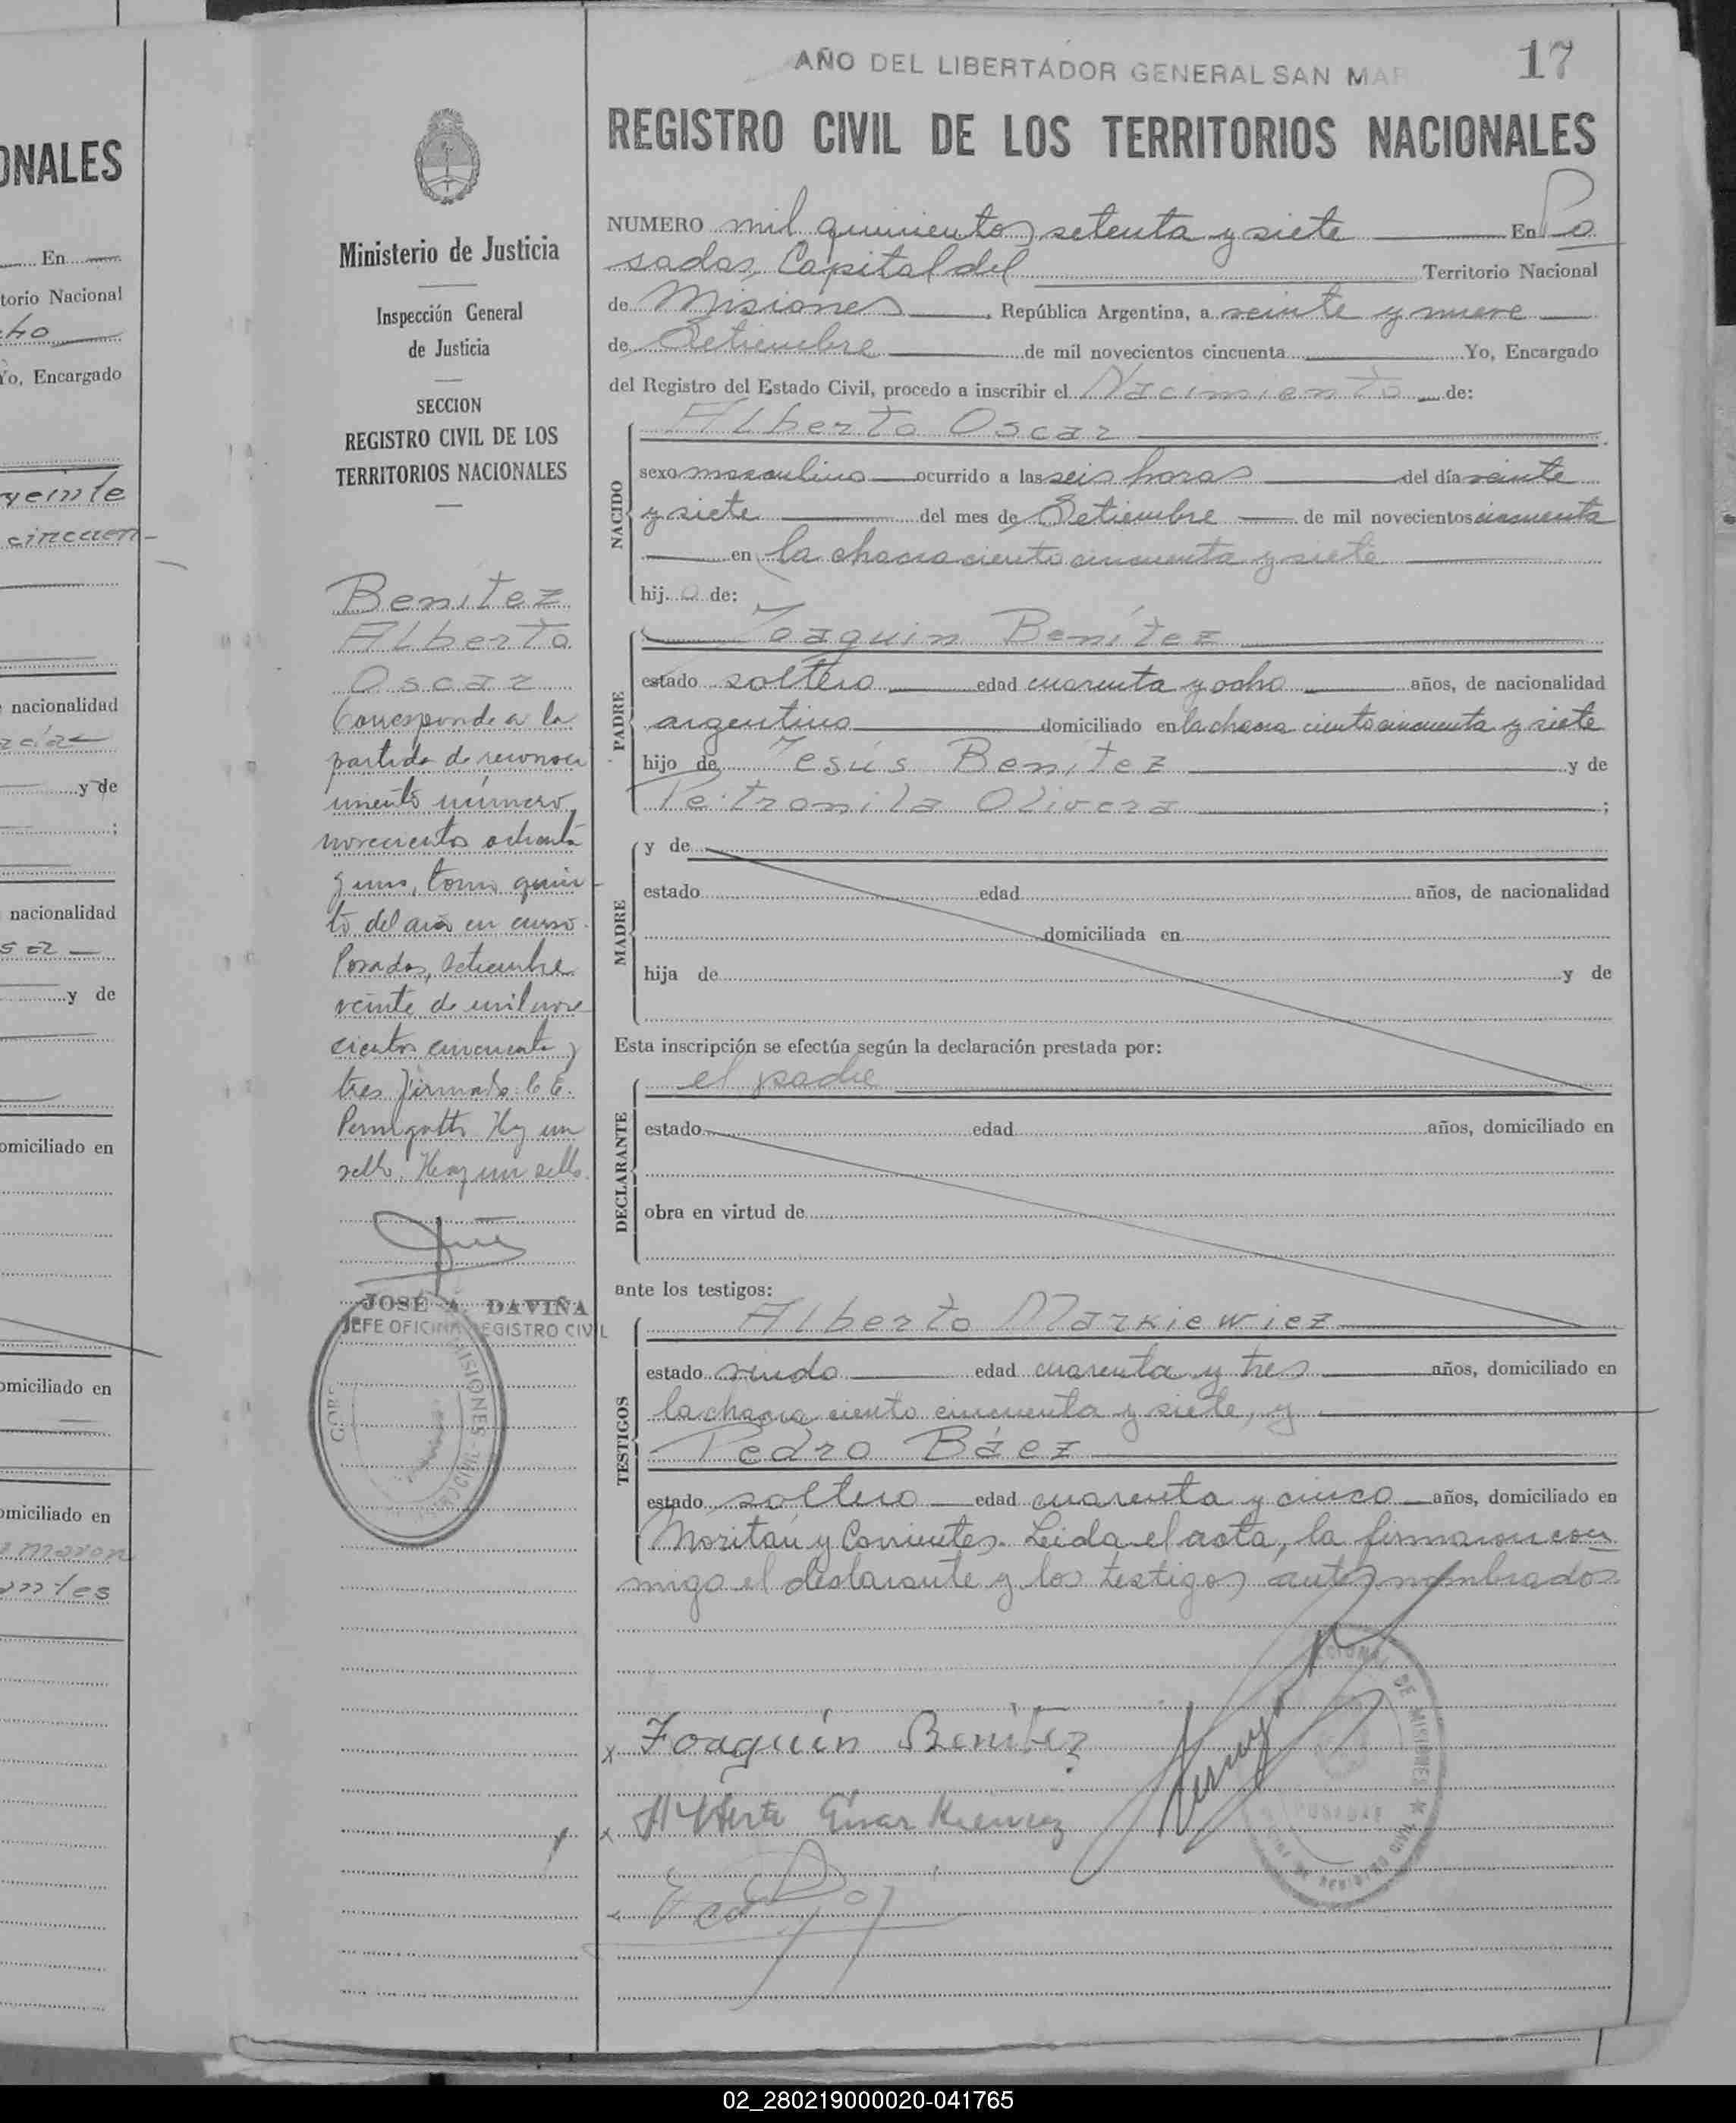 AÑO DEL LIBERTADOR GENERAL SAN MAR
17
REGISTRO CIVIL DE LOS TERRITORIOS NACIONALES
NUMERO mil quinientos setenta y siete En Po
sadas, Capital del Territorio Nacional
de Misiones, República Argentina, a veinte y nueve
de Setiembre de mil novecientos cincuenta Yo, Encargado
del Registro del Estado Civil, procedo a inscribir el Nacimiento de:
NACIDO
Alberto Oscar
sexo masculino ocurrido a las seis horas del día veinte
y siete del mes de Setiembre de mil novecientos cincuenta
en la chacra ciento cincuenta y siete
hij o de:
PADRE
Joaquin Benítez
estado soltero edad cuarenta y ocho años, de nacionalidad
argentino domiciliado en la chacra ciento cincuenta y siete
hijo de Jesús Benítez y de
Petronila Olivera ;
MADRE
y de
estado edad años, de nacionalidad
domiciliada en
hija de y de
Esta inscripción se efectúa según la declaración prestada por:
DECLARANTE
el padre
estado edad años, domiciliado en
obra en virtud de
ante los testigos:
TESTIGOS
Alberto Markiewiez
estado viudo edad cuarenta y tres años, domiciliado en
la chacra ciento cincuenta y siete, y
Pedro Báez
estado soltero edad cuarenta y cinco años, domiciliado en
Moritán y Corrientes. Leida el acta, la firmaron con
migo el declarante y los testigos antes nombrados.
Joaquín Benitez
POSADAS
Ministerio de Justicia
Inspección General
de Justicia
SECCION
REGISTRO CIVIL DE LOS
TERRITORIOS NACIONALES
Benítez
Alberto
Oscar
Corresponde a la
partida de reconoci
miento número
novecientos ochenta
y uno, tomo quin
to del año en curso.
Posadas, setiembre
veinte de mil nove
cientos cincuenta y
tres firmado C. E.
Hay un
sello. Hay un sello.
JOSÉ A. DAVIÑA
JEFE OFICINA REGISTRO CIVIL
ONALES
En
torio Nacional
cho
Yo, Encargado
veinte
cincuen-
nacionalidad
y de
;
nacionalidad
y de
omiciliado en
omiciliado en
omiciliado en
02_280219000020-041765